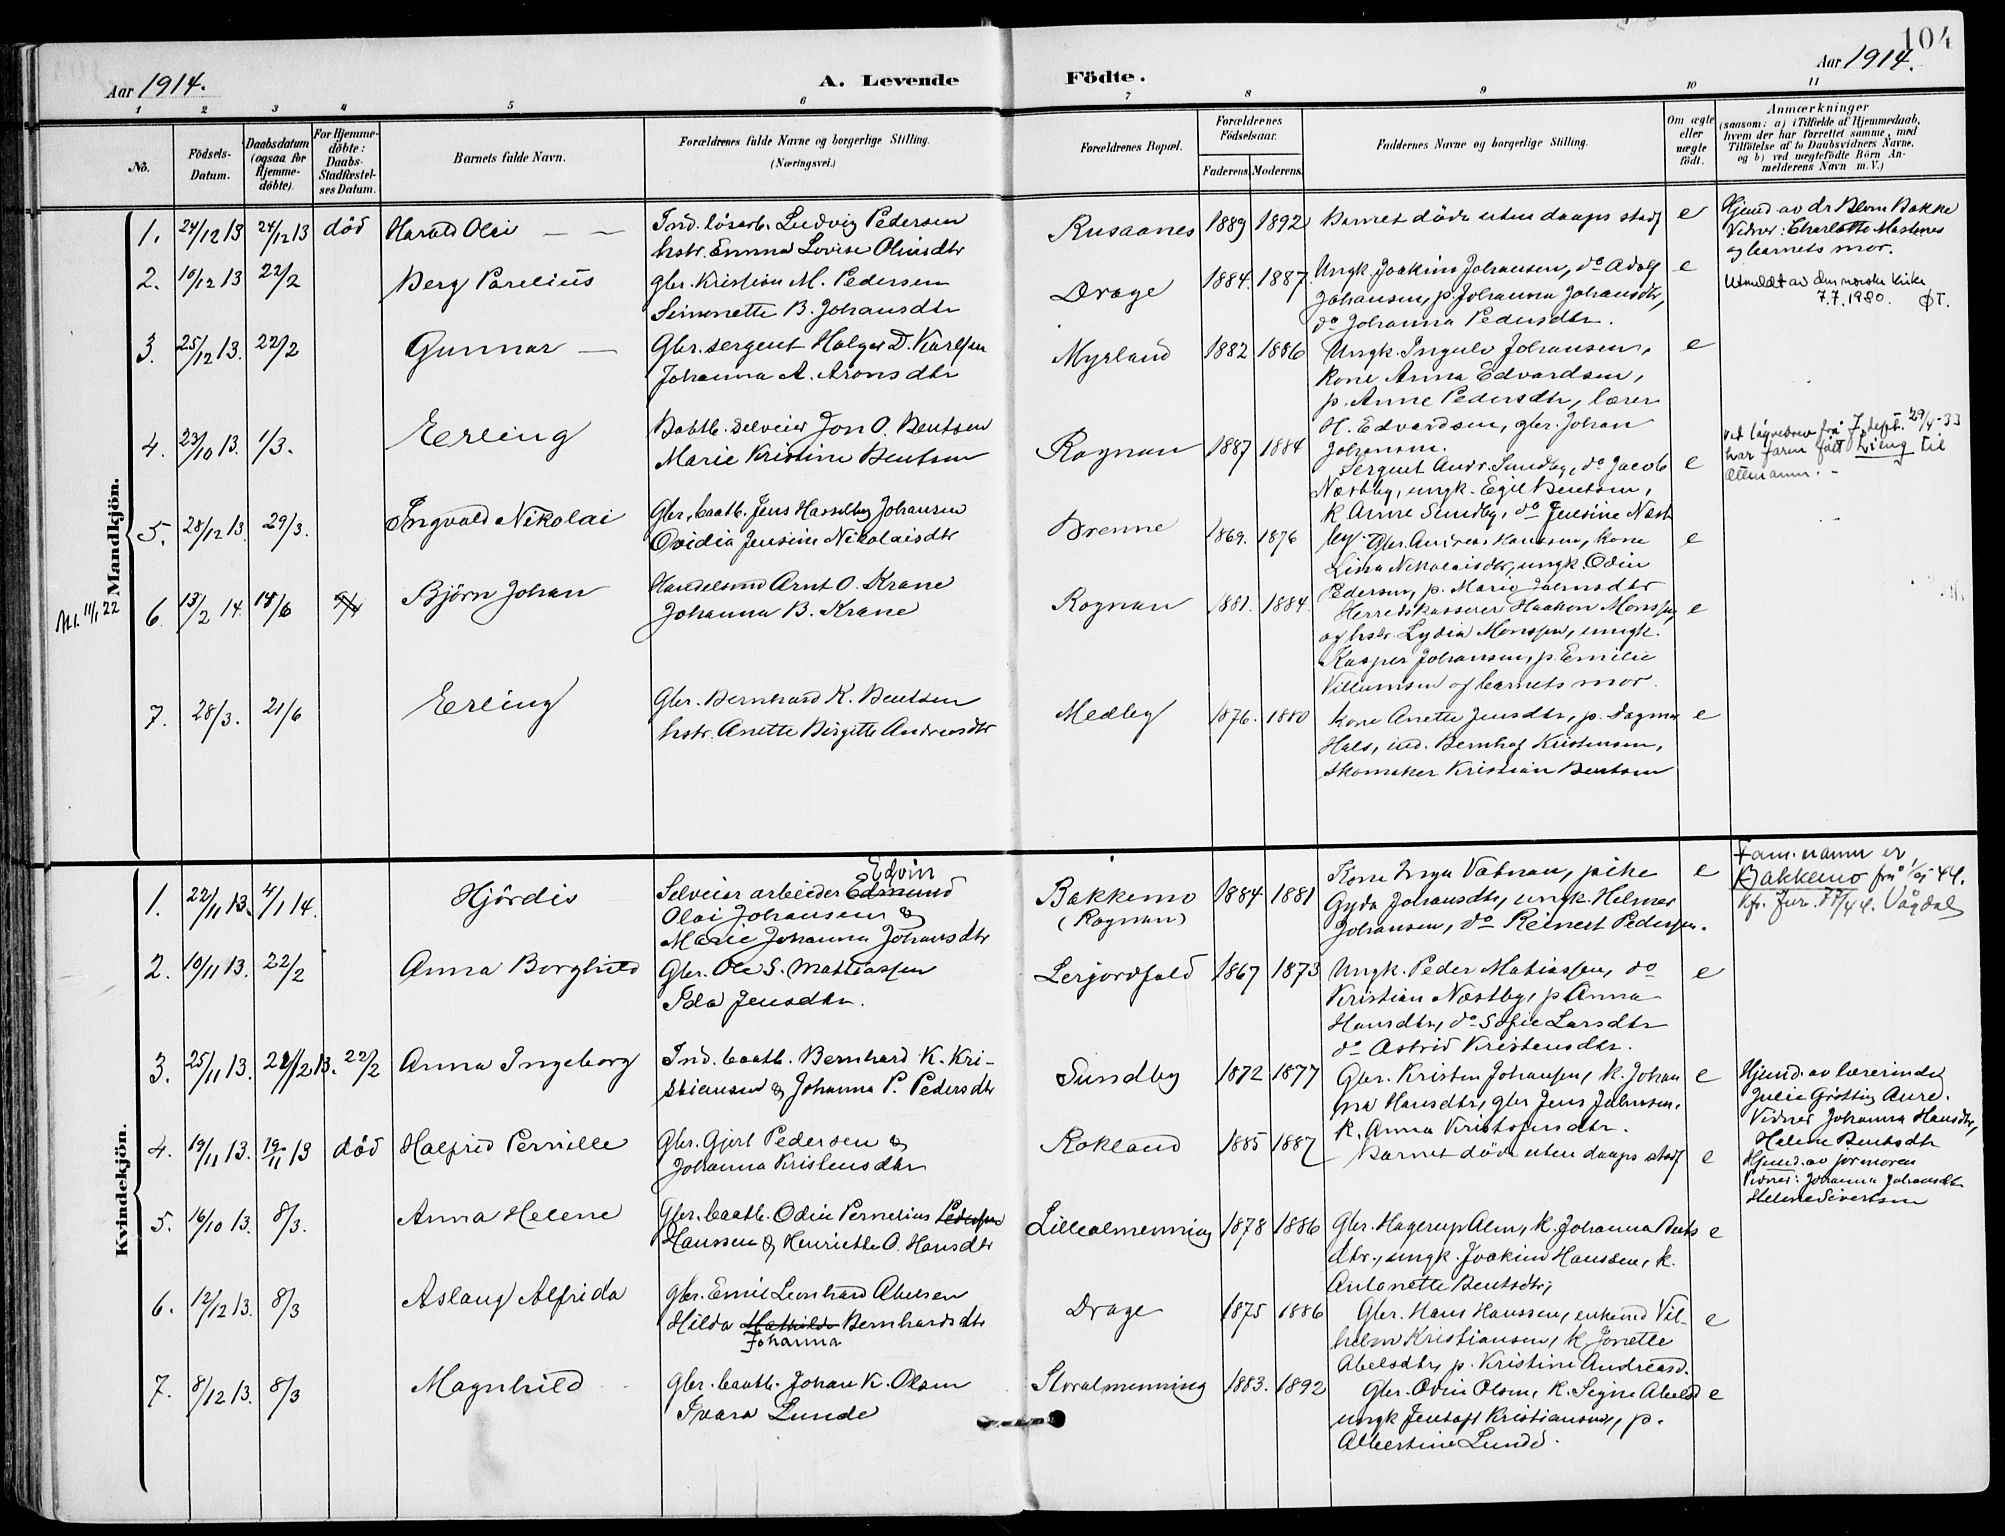 104
Aar 1914.
A. Levende
Födte.
Aar 1914.
1 2 3 4 5 6 7 8 9 10 11
No.
Födsels-Datum.
Daabsdatum (ogsaa for Hjemmedöbte).
For Hjemmedöbte: Daabs-Stadfæstelses Datum.
Barnets fulde Navn.
Forældrenes fulde Navne og borgerlige Stilling. (Næringsvei.)
Forældrenes Bopæl.
Forældrenes Födselsaar.
Faderens. Moderens.
Faddernes Navne og borgerlige Stilling.
Om ægte eller uægte födt.
Anmærkninger
(saasom: a) i Tilfælde af Hjemmedaab, hvem der har forrettet samme, med Tilföielse af to Daabsvidners Navne, og b) ved uægtefödte Börn Anmelderens Navn m. V.)
Mandkjön.
1. 24/12 13 24/12 13 död Harald Olai
Ind. lösarb. Ludvig Pedersen
hstr. Emma Lovise Olinsdtr
Rusaanes 1889 1892 Barnet döde uten daaps stadf e
Hjemd av dr Blom Bakke
Vidner: Charlotte Mastenes
og barnets mor.
2. 10/12 13 22/2 Berg Parelius
gbr. Kristian M. Pedersen
Simonette B. Johansdtr
Drage 1884. 1887.
Ungk. Joakim Johansen, do Adolf
Johansen, p. Johanna Johansdtr,
do Johanna Pedersdtr. e
Utmeldt av den norske kirke
7.7.1980. ØT.
3. 25/12 13. 22/2 Gunnar
Gbr. sergent Holger D. Karlsen
Johanna A. Aronsdtr
Myrland 1882 1886
Ungk. Ingulv Johansen,
kone Anna Edvardsen,
p. Anne Pedersdtr, lærer
H. Edvardsen, gbr. Johan
Johansen. e
4. 23/10 13. 1/3. Erling
Baatb. selveier Jon O. Bentsen
Marie Kristine Bentsen
Rognan 1887 1884
Sergent Andr. Sundby, do Jacob
Næstby, ungk. Egil Bentsen,
k Anne Sundby, do Jensine Næst
by. e
29/4-33
har faren fått Lieng til
ættenamn.
5. 28/12 13. 29/3. Ingvald Nikolai
Gbr. baatb. Jens Hasselberg Johansen
Ovidia Jensine Nikolaisdtr
Brenne 1869. 1876
Gbr. Andreas Hanssen, kone
Lina Nikolaisdtr, ungk. Odin
Pedersen, p. Marie Johnsdtr e
Nr. 11/1 22
6. 13/2 14. 14/6 Björn Johan
Handelsmd Arnt O. Krane
Johanna B. Krane
Rognan 1881. 1884.
Herredskasserer Haakon Monssen,
og hstr Lydia Monssen, ungk.
Kasper Johansen, p. Emilie
Villumsen og barnets mor. e
7. 28/3. 21/6 Erling
Gbr. Bernhard K. Bentsen
hstr. Anette Birgitte Andreasdtr
Medby 1876. 1880
kone Anette Jensdtr, p. Dagmar
Hals, ind. Bernhof Kristensen,
skomaker Kristian Bentsen e
Kvindekjön.
1. 22/11 13. 4/1 14. Hjördis
Edvin
Selveier arbeider Edmund
Olai Johansen &
Marie Johanna Johansdtr
Bakkemo
(Rognan) 1884 1881
Kone Inga Vatnan, pike
Gyda Johansdtr, ungk. Helmer
Johansen, do Reinert Pedersen. e
Fam. namn er
Bakkemo frå 44.
Vågdal
2. 10/11 13. 22/2 Anna Borghild
Gbr. Ole S. Mathiassen
Ida Jensdtr.
Lerjordfald 1867 1873
Ungk. Peder Matiassen, do
Kristian Næstby, p Anna
Hansdtr, do Sofie Larsdtr
do Astrid Kristensdtr. e
3. 25/11 13. 22/2 Anna Ingeborg
Ind. baatb. Bernhard K. Kri-
stiensen & Johanna P. Pedersdtr
Sundby 1872 1877
Gbr. Kristen Johansen, k. Johan
na Hansdtr, gbr Jens Johnsen,
k. Anna Kristofersdtr. e
Hjemd. av lærerinde
Julie Gröttin Aure.
Vidner Johanna Hansdtr,
Helene Bentsdtr
4. 19/11 13. 19/11 13 död Halfrid Pernille
Gbr. Gjert Pedersen &
Johanna Kristensdtr
Rokland 1885 1887
Barnet döde uten daaps stadf e
Hjemd. av jormoren
Vidner: Johanna Johansdtr
Helene Sivertsen
5. 16/10 13. 8/3. Anna Helene
Gbr. baatb. Odin Pernelius Pedersen
Hanssen & Henriette O. Hansdtr
Lillealmenning 1878 1886
Gbr. Hagerup Alm, k. Johanna Bents
dtr., ungk. Joakim Hanssen, k.
Antonette Bentsdtr, e
6. 12/12 13. 8/3 Aslaug Alfrida
gbr. Emil Leonhard Abelsen
Hilda Mathilde Bernhardsdtr
Johanna
Drage 1875 1886
Gbr. Hans Hanssen, enkemd Vil-
helm Kristiansen, k Jonette
Abelsdtr, p. Kristine Andreasd. e
7. 8/12 13. 8/3 Magnhild
gbr. baatb. Johan K. Olsen
Ivara Lunde
Storalmenning 1883. 1892
Gbr. Odin Olsen, k. Signe Abelsd
ungk Jentoft Kristiansen, p.
Albertine Lunde. e